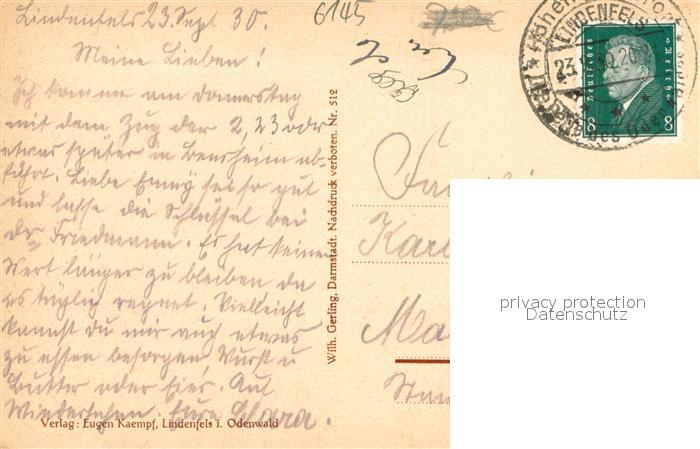 Lindenfels 23. Sept 30.
Meine Lieben!
Ich komme am Donnerstag
mit dem Zug der 2,23 oder
etwas später in Bensheim ab-
fährt. Liebe Emmy sei so gut
und lasse die Schlüssel bei
Dr Friedmann. Es hat keinen
Wert länger zu bleiben da
es täglich regnet. Vielleicht
kannst du mir auch etwas
zu essen besorgen, Wurst u
Butter oder Eier. Auf
Wiedersehen. Eure Clara.
Verlag: Eugen Kaempf, Lindenfels i. Odenwald
Wilh. Gerling, Darmstadt. Nachdruck verboten. Nr. 512
6145
LINDENFELS
23.9.30.20
Deutsches Reich
8 8
Fa
Karl
Ma
privacy protection
Datenschutz